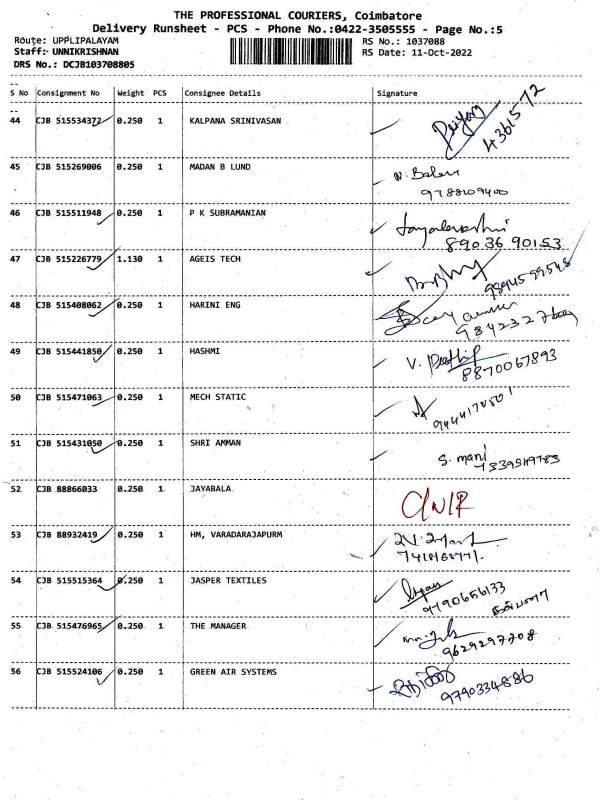 THE PROFESSIONAL COURIERS, Coimbatore
Delivery Runsheet - PCS - Phone No.:0422-3505555 - Page No.:5
Route: UPPLIPALAYAM RS No.: 1037088
Staff: UNNIKRISHNAN RS Date: 11-Oct-2022
DRS No.: DCJB103708805
S No Consignment No Weight PCS Consignee Details Signature
44 CJB 515534372 0.250 1 KALPANA SRINIVASAN
4361572
45 CJB 515269006 0.250 1 MADAN B LUND
9788109400
46 CJB 515511948 0.250 1 P K SUBRAMANIAN
8903690153
47 CJB 515226779 1.130 1 AGEIS TECH
48 CJB 515408062 0.250 1 HARINI ENG
49 CJB 515441850 0.250 1 HASHMI
8870067893
50 CJB 515471063 0.250 1 MECH STATIC
51 CJB 515431050 0.250 1 SHRI AMMAN S. mani
52 CJB 88866033 0.250 1 JAYABALA
53 CJB 88932419 0.250 1 HM, VARADARAJAPURM
54 CJB 515515364 0.250 1 JASPER TEXTILES
9790656133
55 CJB 515476965 0.250 1 THE MANAGER
9629297708
56 CJB 515524106 0.250 1 GREEN AIR SYSTEMS
9790334886